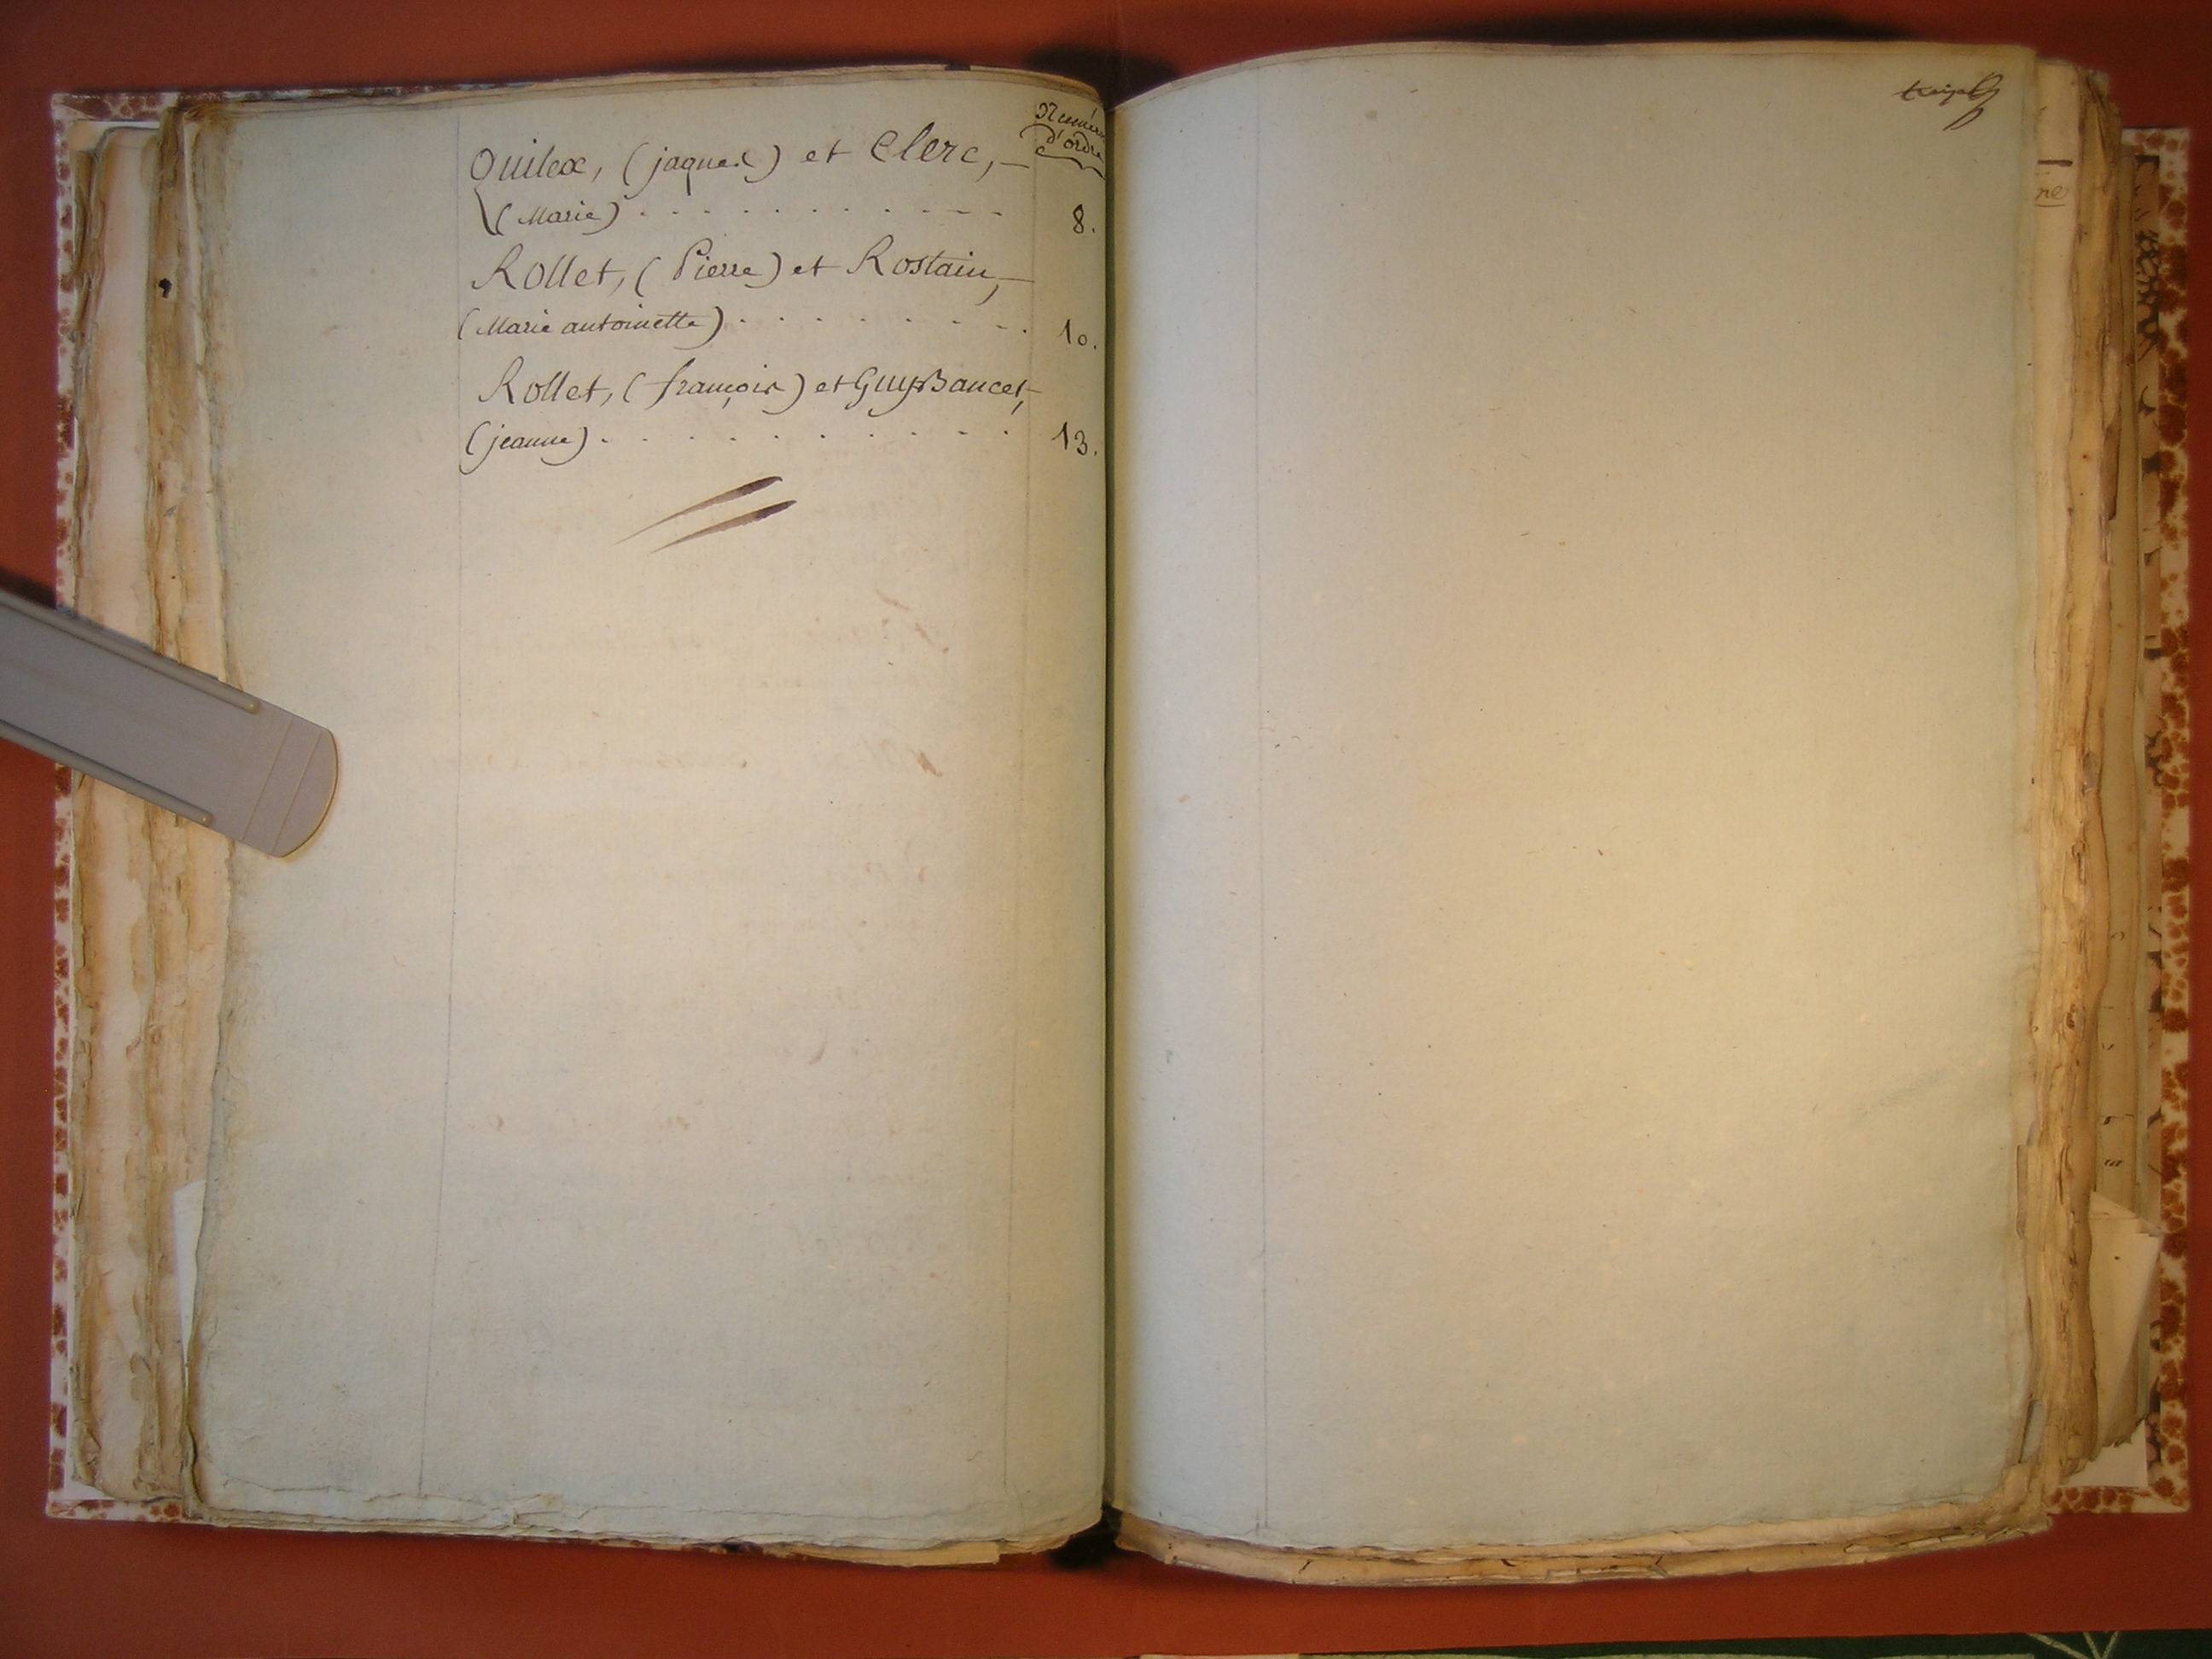 Numéro
d'ordre
Quilex, (jaques) et Clerc,
(Marie) . . . . . . . . . . . 8.
Rollet, (Pierre) et Rostain,
(Marie antoinette) . . . . . . . . 10.
Rollet, (françois) et Guy Bancet,
(jeanne) . . . . . . . . . . 13.